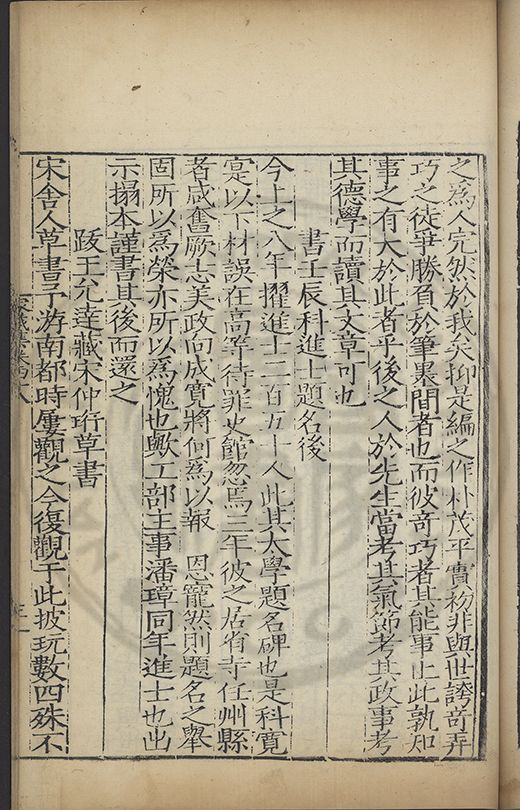 之爲人宛然於我矣抑是編之作朴茂平實初非與世誇奇弄
巧之徒爭勝負於筆墨間者也而彼奇巧者其能事止此孰知
事之有大於此者乎後之人於先生當考其氣節考其政事考
其德學而讀其文章可也
書壬辰科進士題名後
今上之八年擢進士二百五十人此其太學題名碑也是科寬
寔以下材誤在高等待罪史館忽焉三年彼之居省寺任州縣
者咸奮厥志美政向成寬將何爲以報 恩寵然則題名之舉
固所以爲榮亦所以爲愧也歟工部主事潘璋同年進士也出
示搨本謹書其後而還之
跋王允達藏宋仲珩草書
宋舍人草書予游南都時屢觀之今復觀于此披玩數四殊不